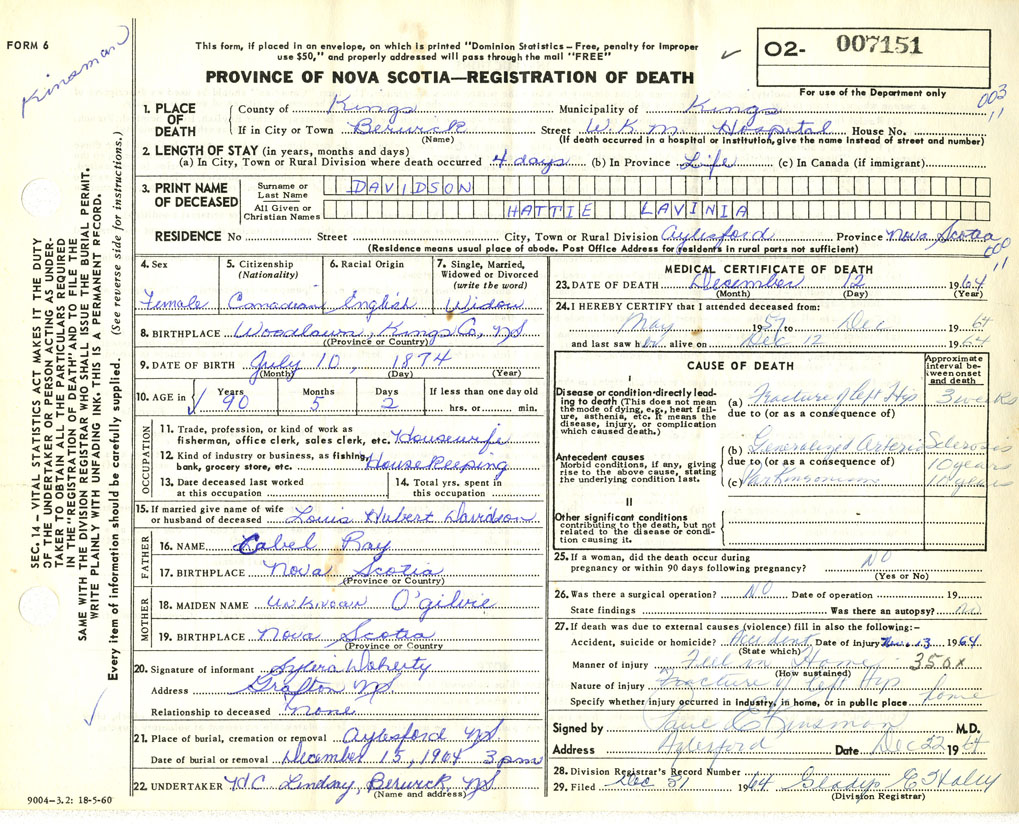 FORM 6
Kinsman
This form, if placed in an envelope, on which is printed "Dominion Statistics – Free, penalty for improper
use $50," and properly addressed will pass through the mail "FREE"
PROVINCE OF NOVA SCOTIA—REGISTRATION OF DEATH
O2- 007151
For use of the Department only
003
11
SEC. 14 – VITAL STATISTICS ACT MAKES IT THE DUTY
OF THE UNDERTAKER OR PERSON ACTING AS UNDER-
TAKER TO OBTAIN ALL THE PARTICULARS REQUIRED
IN THE "REGISTRATION OF DEATH" AND TO FILE THE
SAME WITH THE DIVISION REGISTRAR WHO SHALL ISSUE THE BURIAL PERMIT.
WRITE PLAINLY WITH UNFADING INK. THIS IS A PERMANENT RECORD.
Every item of information should be carefully supplied. (See reverse side for instructions.)
1. PLACE OF DEATH
County of Kings Municipality of Kings
If in City or Town Berwick Street W.K.M. Hospital House No.
(Name) (If death occurred in a hospital or institution, give the name instead of street and number)
2. LENGTH OF STAY (in years, months and days)
(a) In City, Town or Rural Division where death occurred 4 days (b) In Province Life (c) In Canada (if immigrant)
3. PRINT NAME OF DECEASED
Surname or Last Name DAVIDSON
All Given or Christian Names HATTIE LAVINIA
RESIDENCE No Street City, Town or Rural Division Aylesford Province Nova Scotia
(Residence means usual place of abode. Post Office Address for residents in rural parts not sufficient)
11
4. Sex 5. Citizenship (Nationality) 6. Racial Origin 7. Single, Married, Widowed or Divorced (write the word)
Female Canadian English Widow
8. BIRTHPLACE Woodlawn, Kings Co, NS
(Province or Country)
9. DATE OF BIRTH July 10, 1874
(Month) (Day) (Year)
10. AGE in Years Months Days If less than one day old
90 5 2 hrs. or min.
OCCUPATION
11. Trade, profession, or kind of work as
fisherman, office clerk, sales clerk, etc. Housewife
12. Kind of industry or business, as fishing,
bank, grocery store, etc. Housekeeping
13. Date deceased last worked at this occupation 14. Total yrs. spent in this occupation
15. If married give name of wife
or husband of deceased Louis Hubert Davidson
FATHER
16. NAME Cabel Ray
17. BIRTHPLACE Nova Scotia
(Province or Country)
MOTHER
18. MAIDEN NAME unknown O'gilvie
19. BIRTHPLACE Nova Scotia
(Province or Country
20. Signature of informant Sylvia Doherty
Address Grafton NS
Relationship to deceased None
21. Place of burial, cremation or removal Aylesford NS
Date of burial or removal December 15, 1964 3 pm
22. UNDERTAKER H.C. Lindsay, Berwick, NS
(Name and address)
9004–3.2: 18-5-60
MEDICAL CERTIFICATE OF DEATH
23. DATE OF DEATH December 12 1964
(Month) (Day) (Year)
24. I HEREBY CERTIFY that I attended deceased from:
May 1957 to Dec 1964
and last saw her alive on Dec 12 1964
CAUSE OF DEATH
Approximate interval between onset and death
I
Disease or condition directly lead-
ing to death (This does not mean
the mode of dying, e.g., heart fail-
ure, asthenia, etc. It means the
disease, injury, or complication
which caused death.)
(a) Fracture of left Hip 3 weeks
due to (or as a consequence of)
Antecedent causes
Morbid conditions, if any, giving
rise to the above cause, stating
the underlying condition last.
(b) Generalized Arterio Sclerosis
due to (or as a consequence of) 10 years
(c) Parkinsonism 10 years
II
Other significant conditions
contributing to the death, but not
related to the disease or condi-
tion causing it.
25. If a woman, did the death occur during
pregnancy or within 90 days following pregnancy? NO
(Yes or No)
26. Was there a surgical operation? NO Date of operation 19
State findings Was there an autopsy? no
27. If death was due to external causes (violence) fill in also the following:–
Accident, suicide or homicide? Accident Date of injury Nov. 13 1964
(State which)
Manner of injury Fell in Home 350x
(How sustained)
Nature of injury Fracture of Left Hip
Specify whether injury occurred in industry, in home, or in public place home
Signed by Paul E Kinsman M.D.
Address Aylesford Date Dec 22 1964
28. Division Registrar's Record Number
29. Filed Dec 31 1964 Gladys E Haley
(Division Registrar)